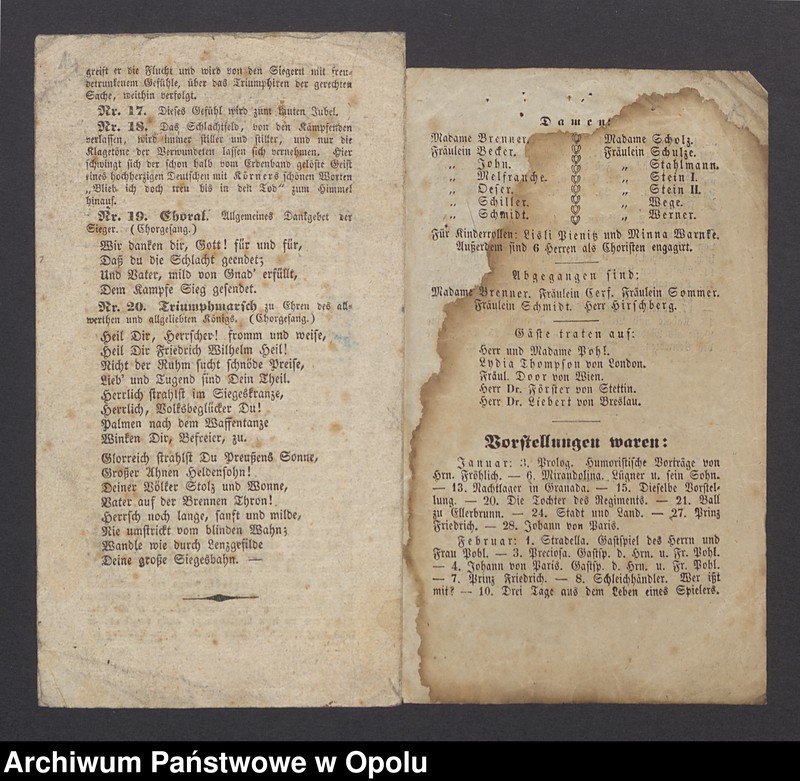 greift er die Flucht und wird von den Siegern mit freu-
detrunkenem Gefühle, über das Triumphiren der gerechten
Sache, weithin verfolgt.
Nr. 17. Dieses Gefühl wird zum lauten Jubel.
Nr. 18. Das Schlachtfeld, von den Kämpfenden
verlassen, wird immer stiller und stiller, und nur die
Klagetöne der Verwundeten lassen sich vernehmen. Hier
schwingt sich der schon halb vom Erdenband gelöste Geist
eines hochherzigen Deutschen mit Körners schönen Worten
„Blieb ich doch treu bis in den Tod“ zum Himmel
hinauf.
Nr. 19. Choral. Allgemeines Dankgebet der
Sieger. (Chorgesang.)
Wir danken dir, Gott! für und für,
Daß du die Schlacht geendet;
Und Vater, mild von Gnad' erfüllt,
Dem Kampfe Sieg gesendet.
Nr. 20. Triumphmarsch zu Ehren des all-
werthen und allgeliebten Königs. (Chorgesang.)
Heil Dir, Herrscher! fromm und weise,
Heil Dir Friedrich Wilhelm Heil!
Nicht der Ruhm sucht schnöde Preise,
Lieb' und Tugend sind Dein Theil.
Herrlich strahlst im Siegeskranze,
Herrlich, Volksbeglücker Du!
Palmen nach dem Waffentanze
Winken Dir, Befreier, zu.
Glorreich strahlst Du Preußens Sonne,
Großer Ahnen Heldensohn!
Deiner Völker Stolz und Wonne,
Vater auf der Brennen Thron!
Herrsch noch lange, sanft und milde,
Nie umstrickt vom blinden Wahn;
Wandle wie durch Lenzgefilde
Deine große Siegesbahn. —
Damen:
Madame Brenner. Madame Scholz.
Fräulein Becker. Fräulein Schulze.
„ John. „ Stahlmann.
„ Melfranche. „ Stein I.
„ Oeser. „ Stein II.
„ Schiller. „ Wege.
„ Schmidt. „ Werner.
Für Kinderrollen: Lisli Pienitz und Minna Warnke.
Außerdem sind 6 Herren als Choristen engagirt.
Abgegangen sind:
Madame Brenner. Fräulein Cerf. Fräulein Sommer.
Fräulein Schmidt. Herr Hirschberg.
Gäste traten auf:
Herr und Madame Pohl.
Lydia Thompson von London.
Fräul. Door von Wien.
Herr Dr. Förster von Stettin.
Herr Dr. Liebert von Breslau.
Vorstellungen waren:
Januar: 3. Prolog. Humoristische Vorträge von
Hrn. Fröhlich. — 6. Mirandolina. Lügner u. sein Sohn.
— 13. Nachtlager in Granada. — 15. Dieselbe Vorstel-
lung. — 20. Die Tochter des Regiments. — 21. Ball
zu Ellerbrunn. — 24. Stadt und Land. — 27. Prinz
Friedrich. — 28. Johann von Paris.
Februar: 1. Stradella. Gastspiel des Herrn und
Frau Pohl. — 3. Preciosa. Gastsp. d. Hrn. u. Fr. Pohl.
— 4. Johann von Paris. Gastsp. d. Hrn. u. Fr. Pohl.
— 7. Prinz Friedrich. — 8. Schleichhändler. Wer ißt
mit? — 10. Drei Tage aus dem Leben eines Spielers.
Archiwum Państwowe w Opolu